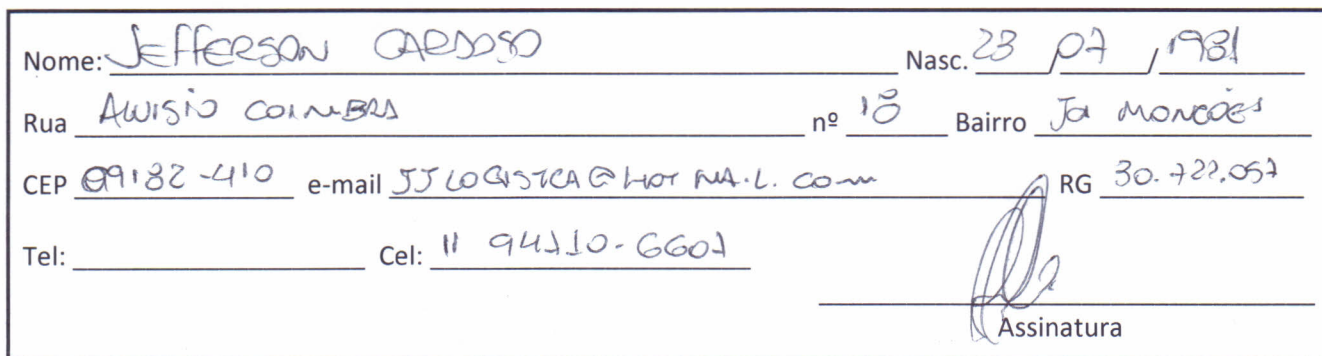 Nome: JEFFERSON CARDOSO Nasc. 23 / 07 / 1981
Rua ALUISIO COIMBRA nº 18 Bairro Jd MONCOES
CEP 09182-410 e-mail JJLOGISTICA@HOTMAIL.COM RG 30.722.057
Tel: Cel: 11 94710-6607
Assinatura